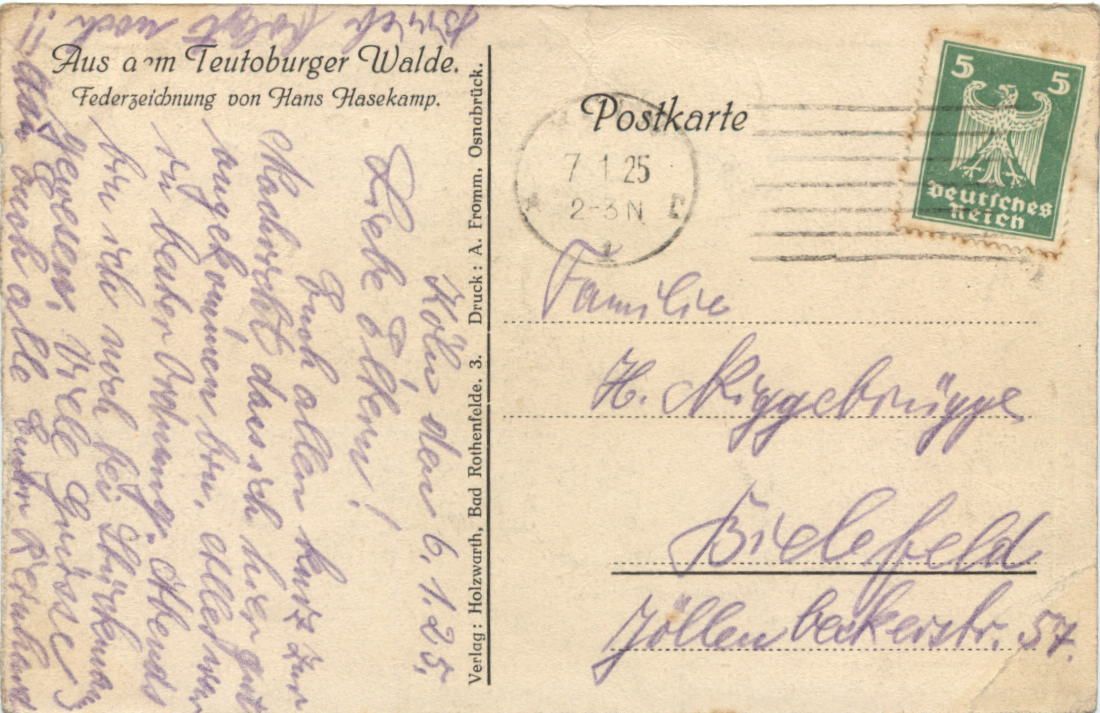 Aus dem Teutoburger Walde.
Federzeichnung von Hans Hasekamp.
Postkarte
7.1.25
2-3N
5 5
Deutsches
Reich
Verlag: Holzwarth, Bad Rothenfelde. 3. Druck: A. Fromm, Osnabrück.
Familie
H. Niggebrügge
Bielefeld
Jöllenbeckerstr. 57.
Köln den 6.1.25.
Liebe Eltern!
Euch allen kurz zur
Nachricht dass ich hier gut
angekommen bin, alles war
in bester Ordnung. Abends
bin ich noch bei
gewesen. Viele Grüsse
an Euch alle Euer Reinhard
Brief folgt noch!!